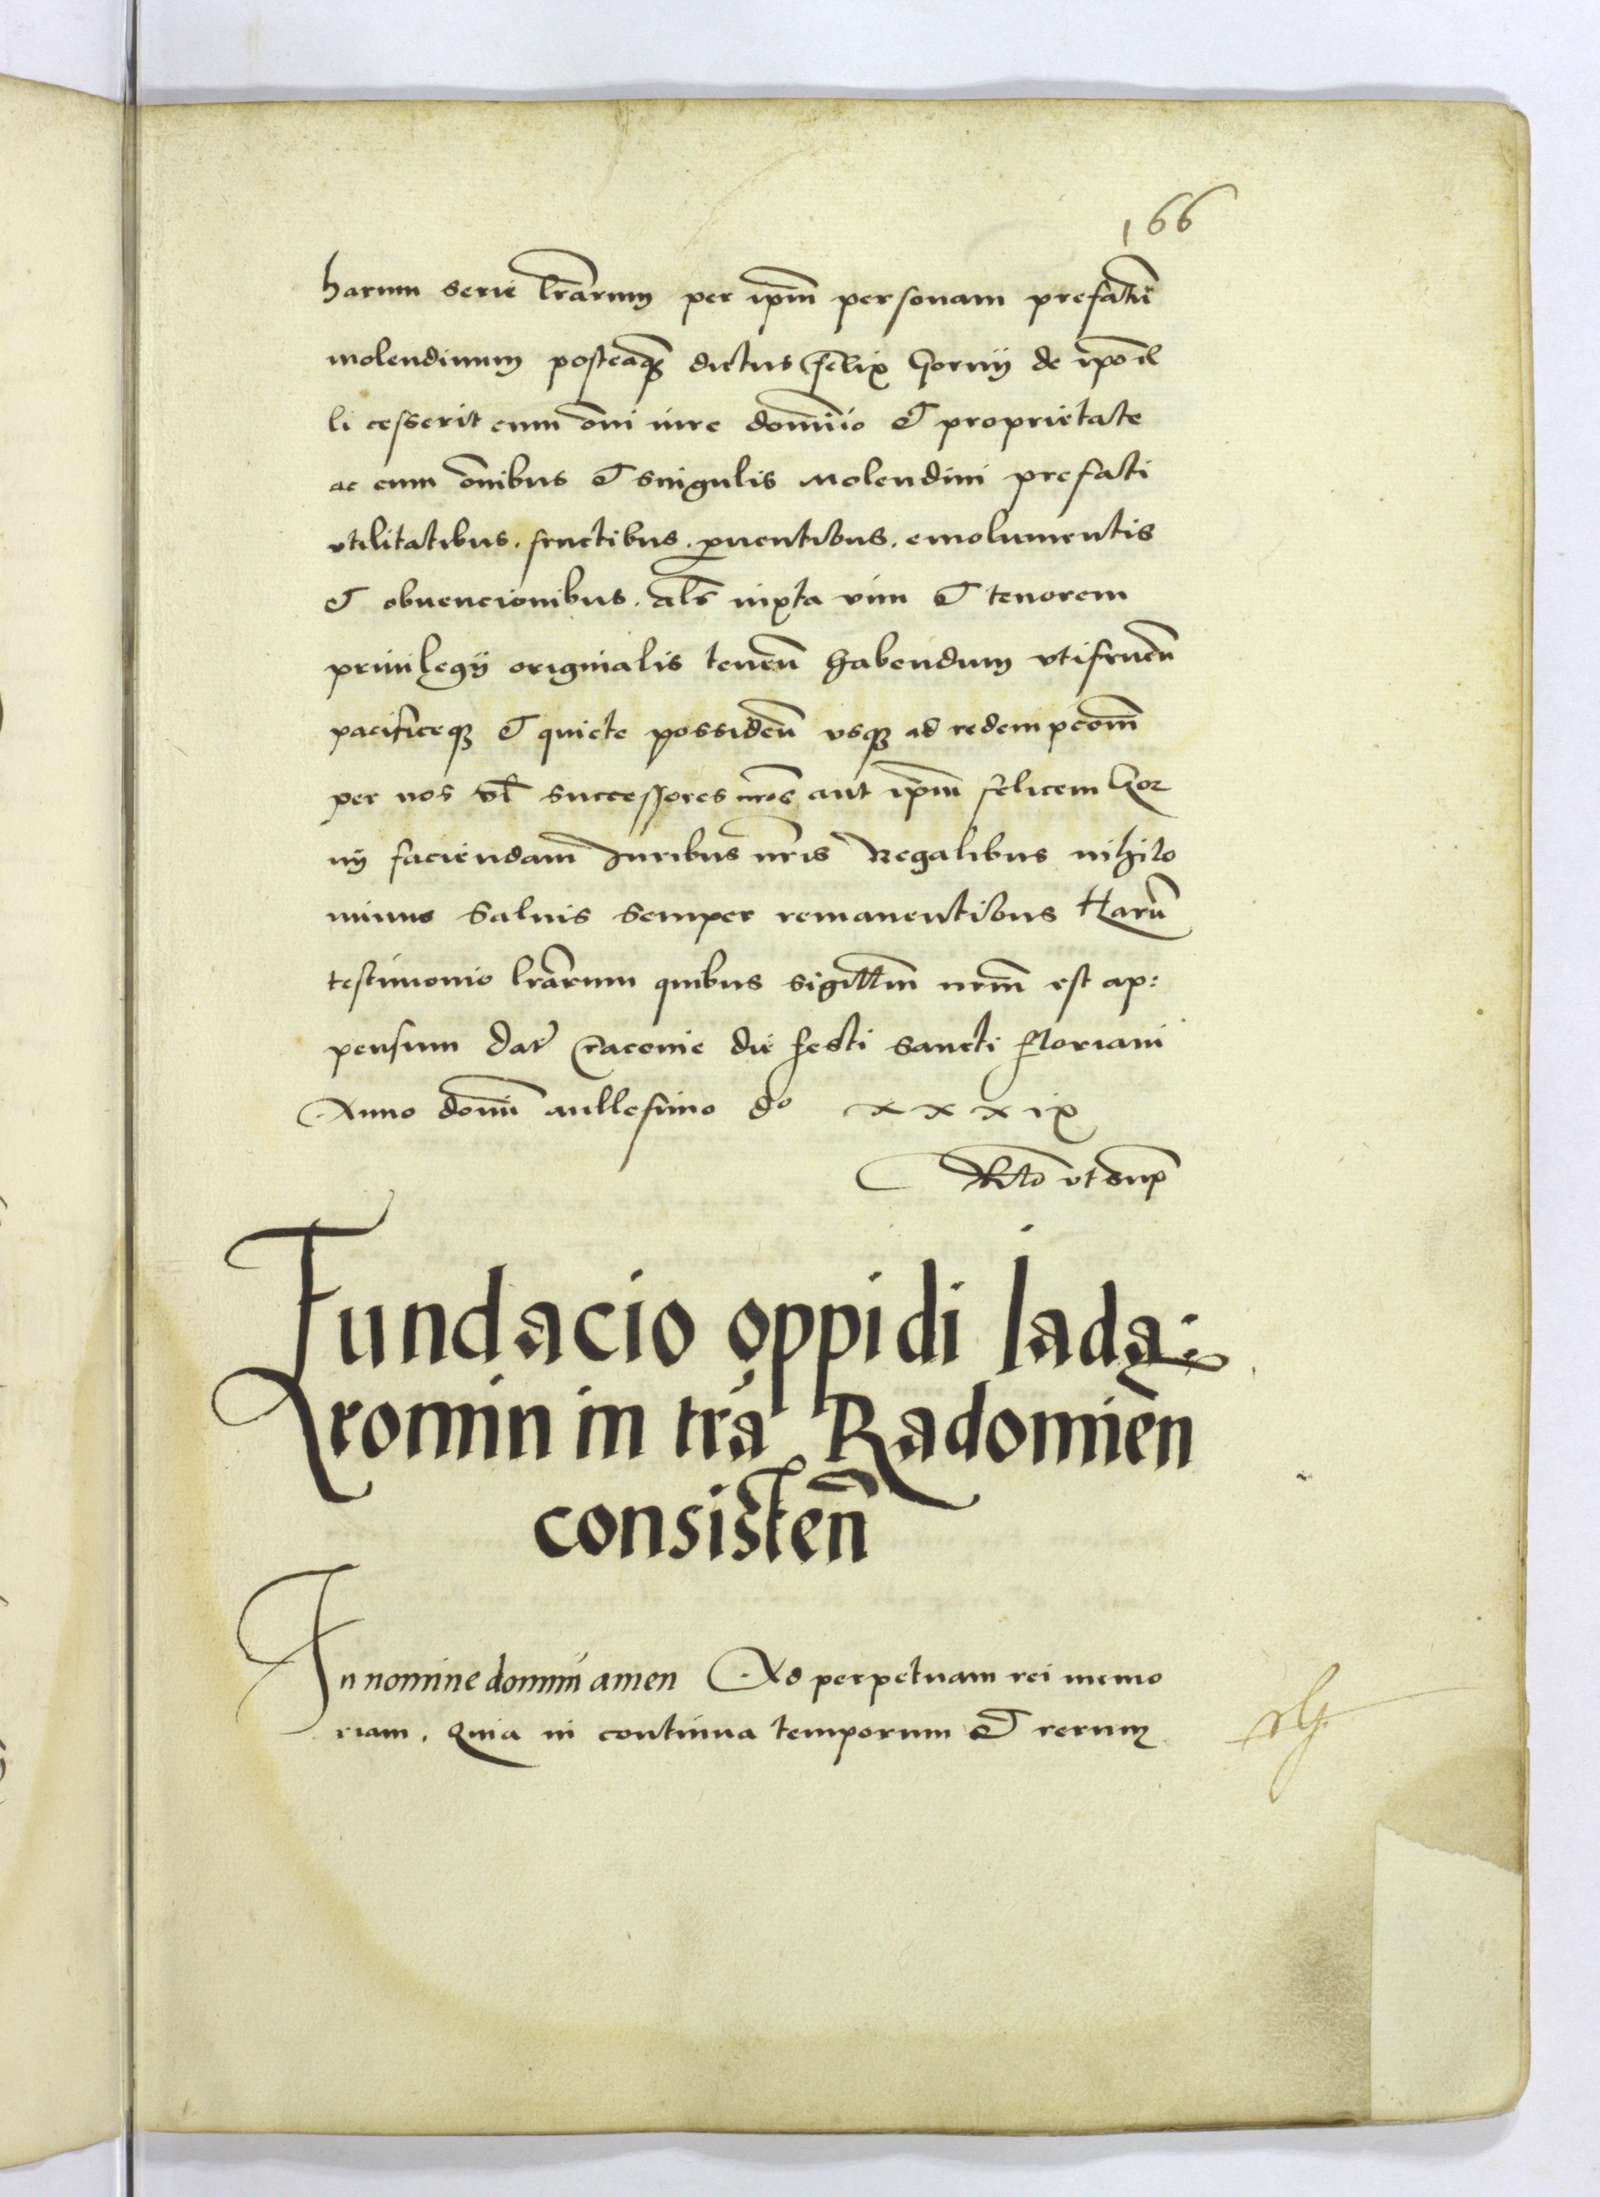 166
harum serie l̄rarum per ip̄m personam prefatū
molendinum posteaq̄ dictus felix Gorny de ip̄o il
li cesserit cum om̄i iure dominio et proprietate
ac cum om̄ibus et singulis molendini prefati
vtilitatibus. fructibus. ꝓuentibus. emolumentis
et obuencionibus. al̄s iuxta vim et tenorem
priuilegij originalis teneñ habendum vtifrueñ
pacificeqꝫ et quiete possideñ vsqꝫ ad redempcom̄
per nos vl̄ successores nr̄os aut ip̄m felicem Gor
ny faciendam Juribus nr̄is Regalibus nihilo
minus saluis semper remanentibus Harū
testimonio l̄rarum quibus sigillm̄ nrm̄ est ap:
pensum dat̄ Cracouie die festi sancti floriani
Anno domi millesimo do xxxix
R̄lo vt sup̄
Fundacio oppidi Jada:
kromin in tr̄a Radomieñ
consisteñ
In nomine domini amen Ad perpetuam rei memo
riam. Quia in continua temporum et rerum